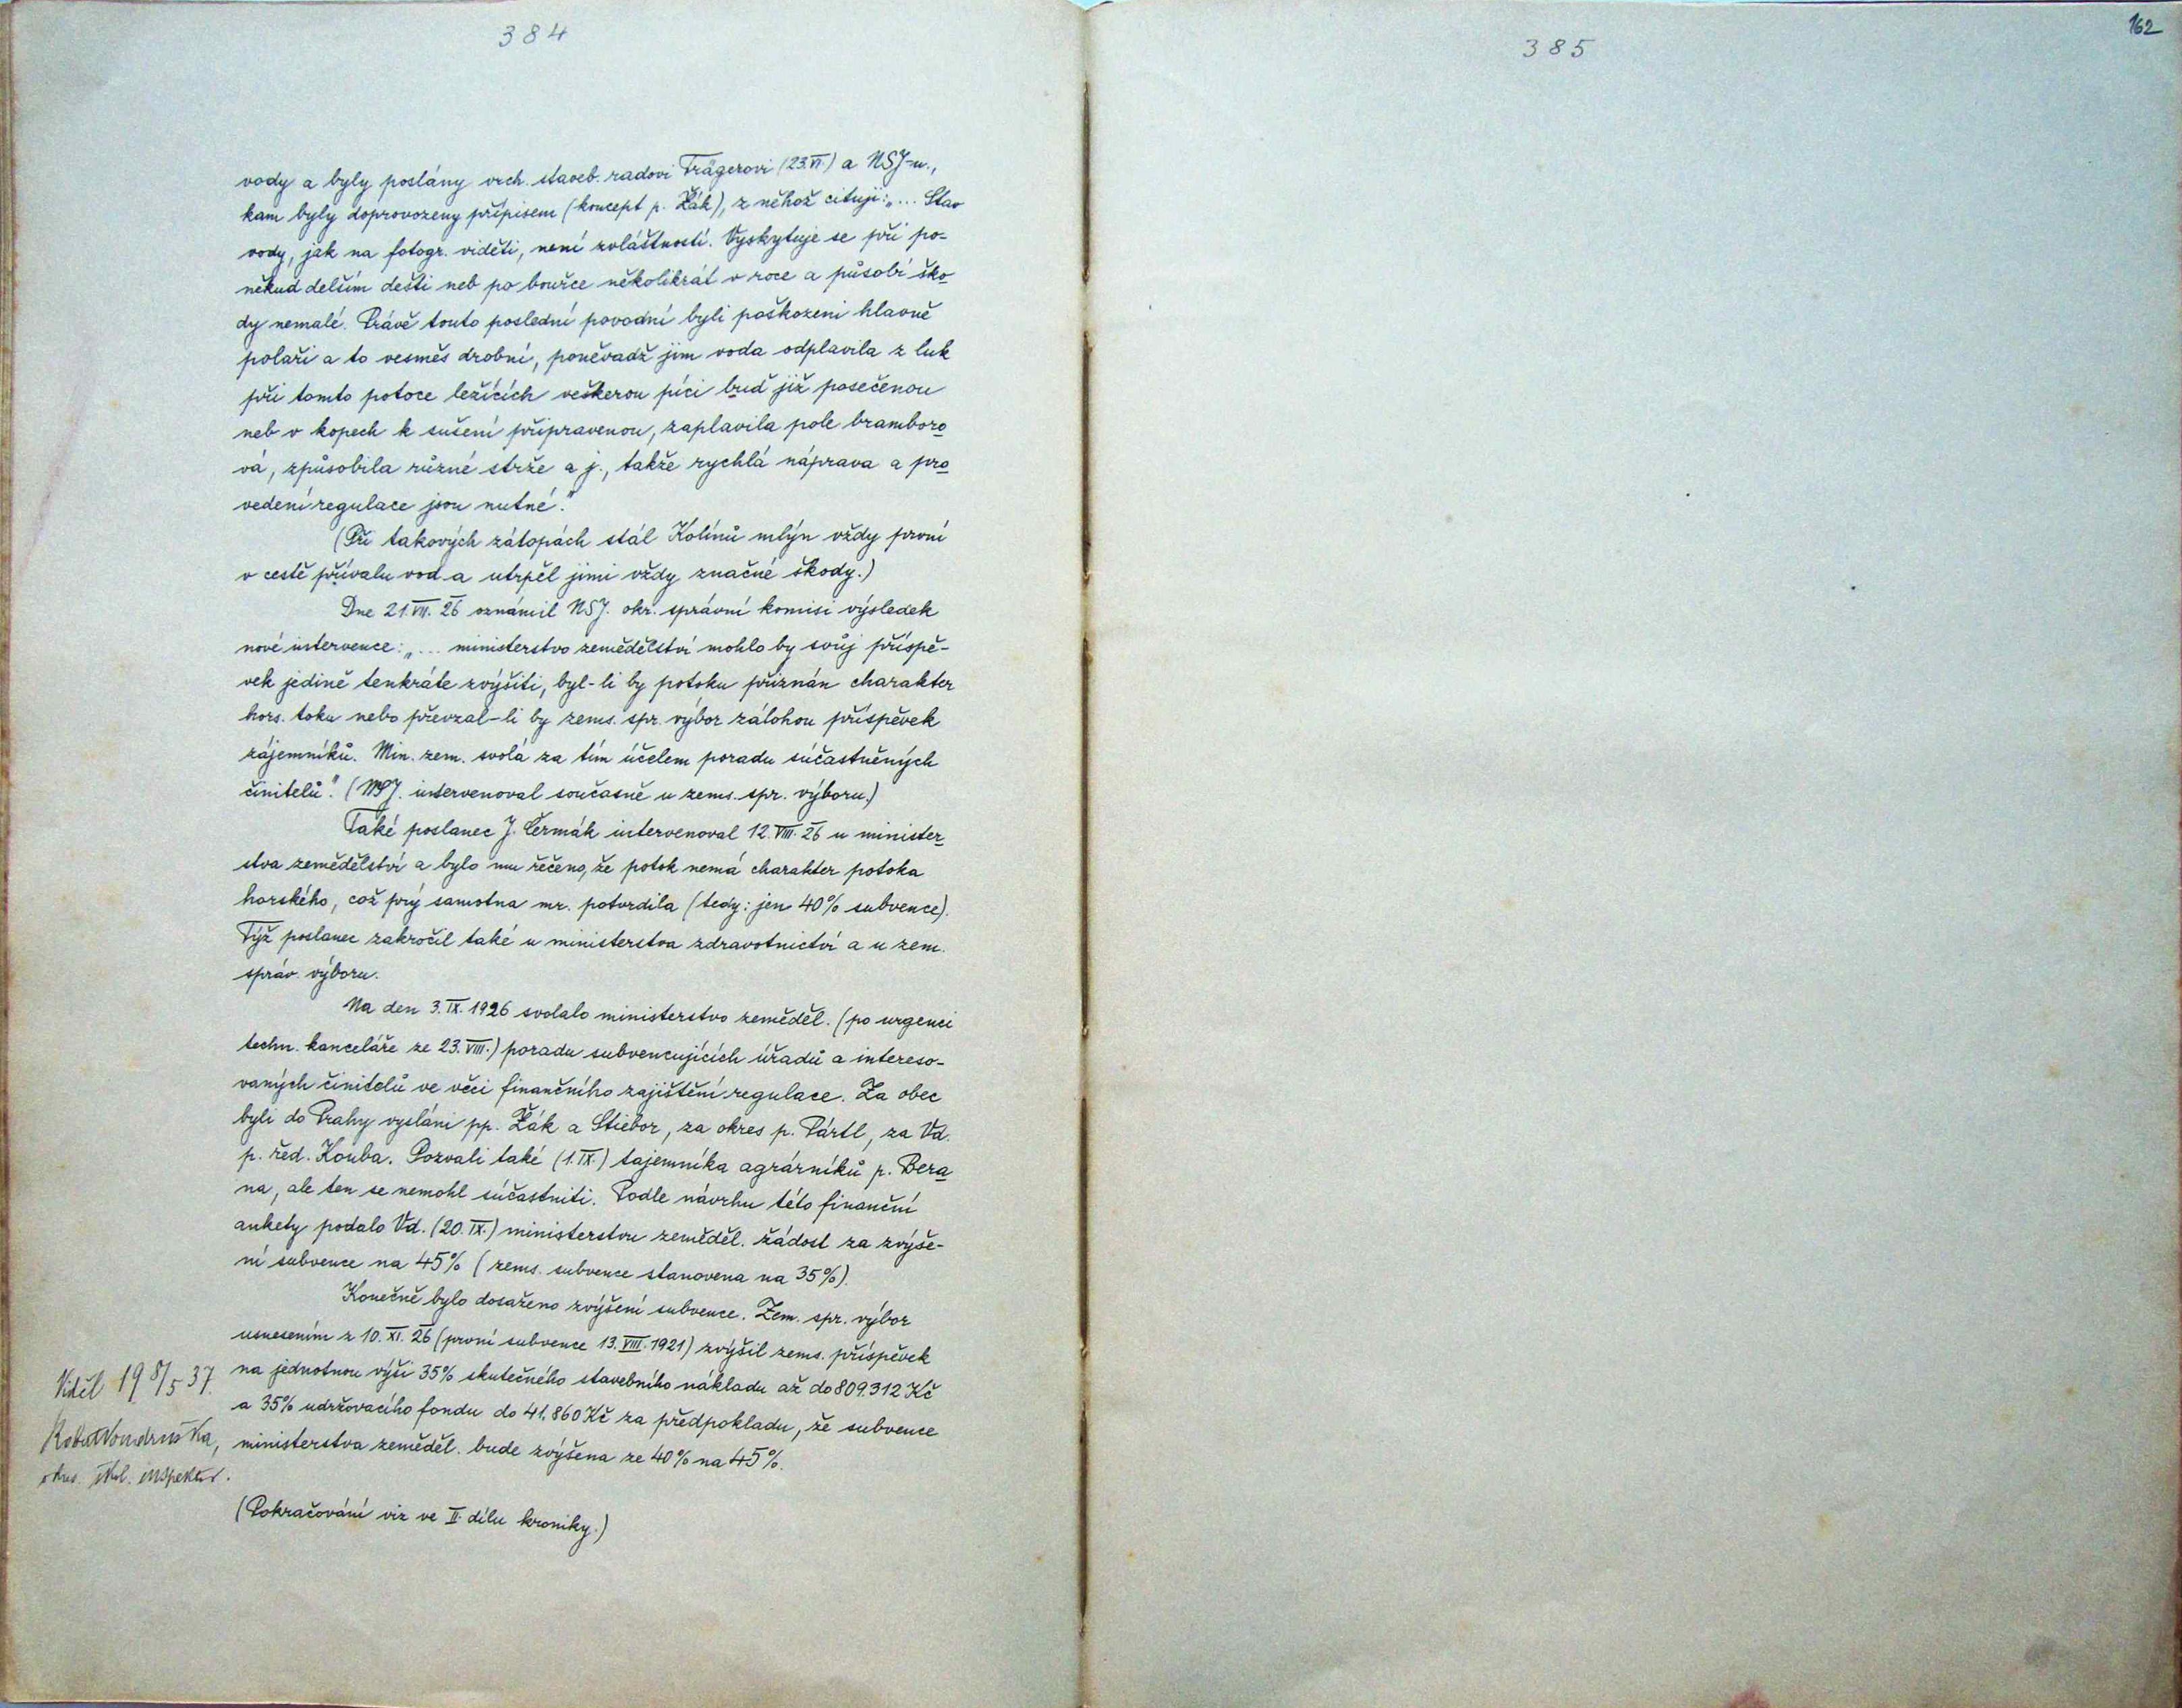 384
vody a byly poslány vrch. staveb. radovi Trägerovi (23.VI.) a NSJ-u.,
kam byly doprovozeny přípisem (koncept p. Žák), z něhož cituji: „... Stav
vody, jak na fotogr. viděti, není zvláštností. Vyskytuje se při po-
někud delším dešti neb po bouřce několikrát v roce a působí ško-
dy nemalé. Právě touto poslední povodní byli poškozeni hlavně
polaři a to vesměs drobní, poněvadž jim voda odplavila z luk
při tomto potoce ležících veškerou píci buď již posečenou
neb v kopech k sušení připravenou, zaplavila pole bramboro-
vá, způsobila různé strže a j., takže rychlá náprava a pro-
vedení regulace jsou nutné."
(Při takových zátopách stál Kolínů mlýn vždy první
v cestě přívalu vod a utrpěl jimi vždy značné škody.)
Dne 21.VII.26 oznámil NSJ. okr. správní komisi výsledek
nové intervence: „... ministerstvo zemědělství mohlo by svůj příspě-
vek jedině tenkráte zvýšiti, byl-li by potoku přiznán charakter
hors. toku nebo převzal-li by zems. spr. výbor zálohou příspěvek
zájemníků. Min. zem. svolá za tím účelem poradu súčastněných
činitelů". (NSJ. intervenoval současně u zems. spr. výboru.)
Také poslanec J. Čermák intervenoval 12.VIII.26 u minister-
stva zemědělství a bylo mu řečeno, že potok nemá charakter potoka
horského, což prý samotna mr. potvrdila (tedy: jen 40% subvence).
Týž poslanec zakročil také u ministerstva zdravotnictví a u zem.
správ. výboru.
Na den 3.IX.1926 svolalo ministerstvo zeměděl. (po urgenci
techn. kanceláře ze 23.VIII.) poradu subvencujících úřadů a intereso-
vaných činitelů ve věci finančního zajištění regulace. Za obec
byli do Prahy vysláni pp. Žák a Stiebor, za okres p. Pártl, za Vd.
p. řed. Kouba. Pozvali také (1.IX.) tajemníka agrárníků p. Bera-
na, ale ten se nemohl súčastniti. Podle návrhu této finanční
ankety podalo Vd. (20.IX.) ministerstvu zeměděl. žádost za zvýše-
ní subvence na 45% (zems. subvence stanovena na 35%).
Konečně bylo dosaženo zvýšení subvence. Zem. spr. výbor
usnesením z 10.XI.26 (první subvence 13.VIII.1921) zvýšil zems. příspěvek
na jednotnou výši 35% skutečného stavebního nákladu až do 809.312 Kč
a 35% udržovacího fondu do 41.860 Kč za předpokladu, že subvence
ministerstva zeměděl. bude zvýšena ze 40% na 45%.
(Pokračování viz ve II. dílu kroniky.)
Viděl 19 8/5 37.
Robert Vondruška,
okres. škol. inspektor.
385
162